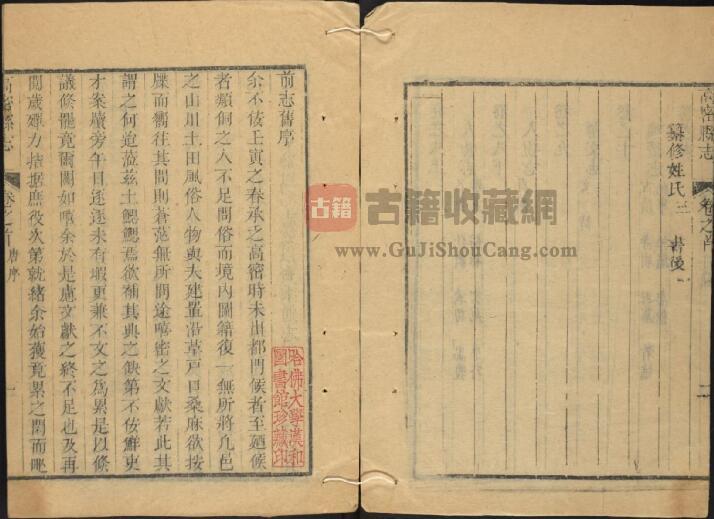 高密縣志
卷之首
二
纂修姓氏三
書後
前志舊序
余不佞壬寅之春承之高密時未出都門候者至廼候
者類侗之人不足問俗而境內圖籍復一無所將凡邑
之山川土田風俗人物與夫建置沿革戸口桑麻欲按
牒而衢往其間則蒼茫無所問途嘻密之文獻若此其
謂之何迨蒞茲土鰓鰓焉欲補其典之缺第不佞鮮吏
才案牘旁午日逐逐未有暇更兼不文之為累是以條
議條罷竟爾闕如噴余於是慮文獻之終不足也及再
閱歲殫力拮据庶役次第就緒余始獲竟累之間而毗
高密縣志
卷之首
舊序
一
哈佛大學漢和
圖書館珍藏印
古籍
古籍收藏網
www.GuJiShouCang.com